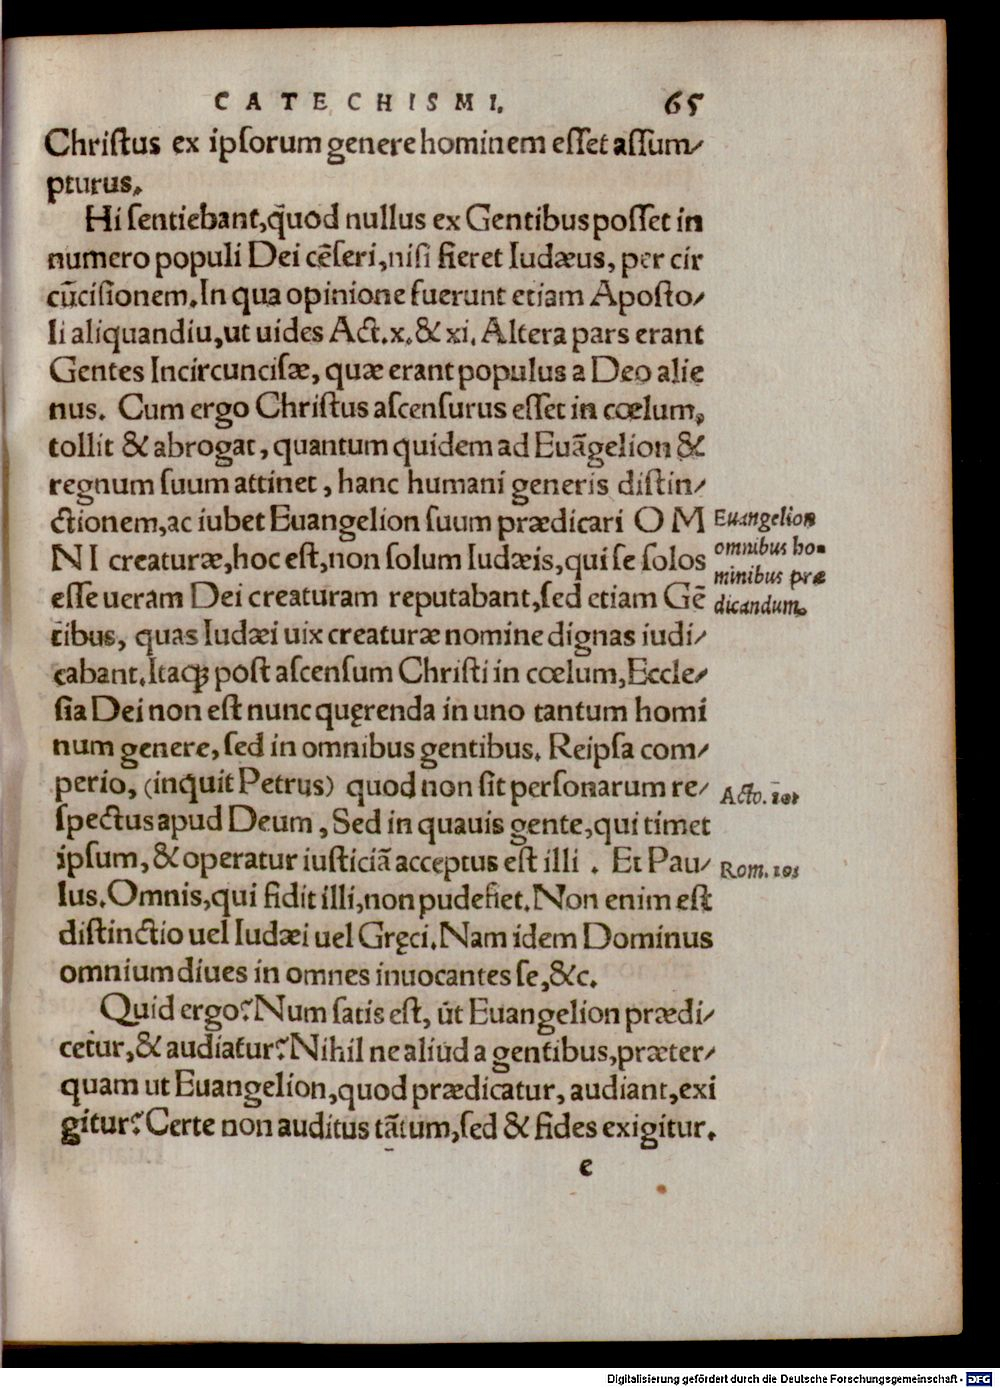 CATECHISMI. 65
Christus ex ipsorum genere hominem esset assum⸗
pturus.
Hi sentiebant, q̄uod nullus ex Gentibus posset in
numero populi Dei cēseri, nisi fieret Iudæus, per cir
cūcisionem. In qua opinione fuerunt etiam Aposto⸗
li aliquandiu, ut uides Act. x. & xi. Altera pars erant
Gentes Incircuncisæ, quæ erant populus a Deo alie
nus. Cum ergo Christus ascensurus esset in cœlum,
tollit & abrogat, quantum quidem ad Euāgelion &
regnum suum attinet, hanc humani generis distin⸗
ctionem, ac iubet Euangelion suum prædicari OM
NI creaturæ, hoc est, non solum Iudæis, qui se solos
esse ueram Dei creaturam reputabant, sed etiam Gē
tibus, quas Iudæi uix creaturæ nomine dignas iudi⸗
cabant. Itaq; post ascensum Christi in cœlum, Eccle⸗
sia Dei non est nunc quęrenda in uno tantum homi
num genere, sed in omnibus gentibus. Reipsa com⸗
perio, (inquit Petrus) quod non sit personarum re⸗
spectus apud Deum, Sed in quauis gente, qui timet
ipsum, & operatur iusticiā acceptus est illi. Et Pau⸗
lus. Omnis, qui fidit illi, non pudefiet. Non enim est
distinctio uel Iudæi uel Gręci. Nam idem Dominus
omnium diues in omnes inuocantes se, &c.
Quid ergo? Num satis est, út Euangelion prædi⸗
cetur, & audiatur? Nihil ne aliud a gentibus, præter⸗
quam ut Euangelion, quod prædicatur, audiant, exi
gitur? Certe non auditus tātum, sed & fides exigitur.
e
Euangelion
omnibus ho⸗
minibus præ
dicandum.
Acto. 10.
Rom. 10.
Digitalisierung gefördert durch die Deutsche Forschungsgemeinschaft - DFG